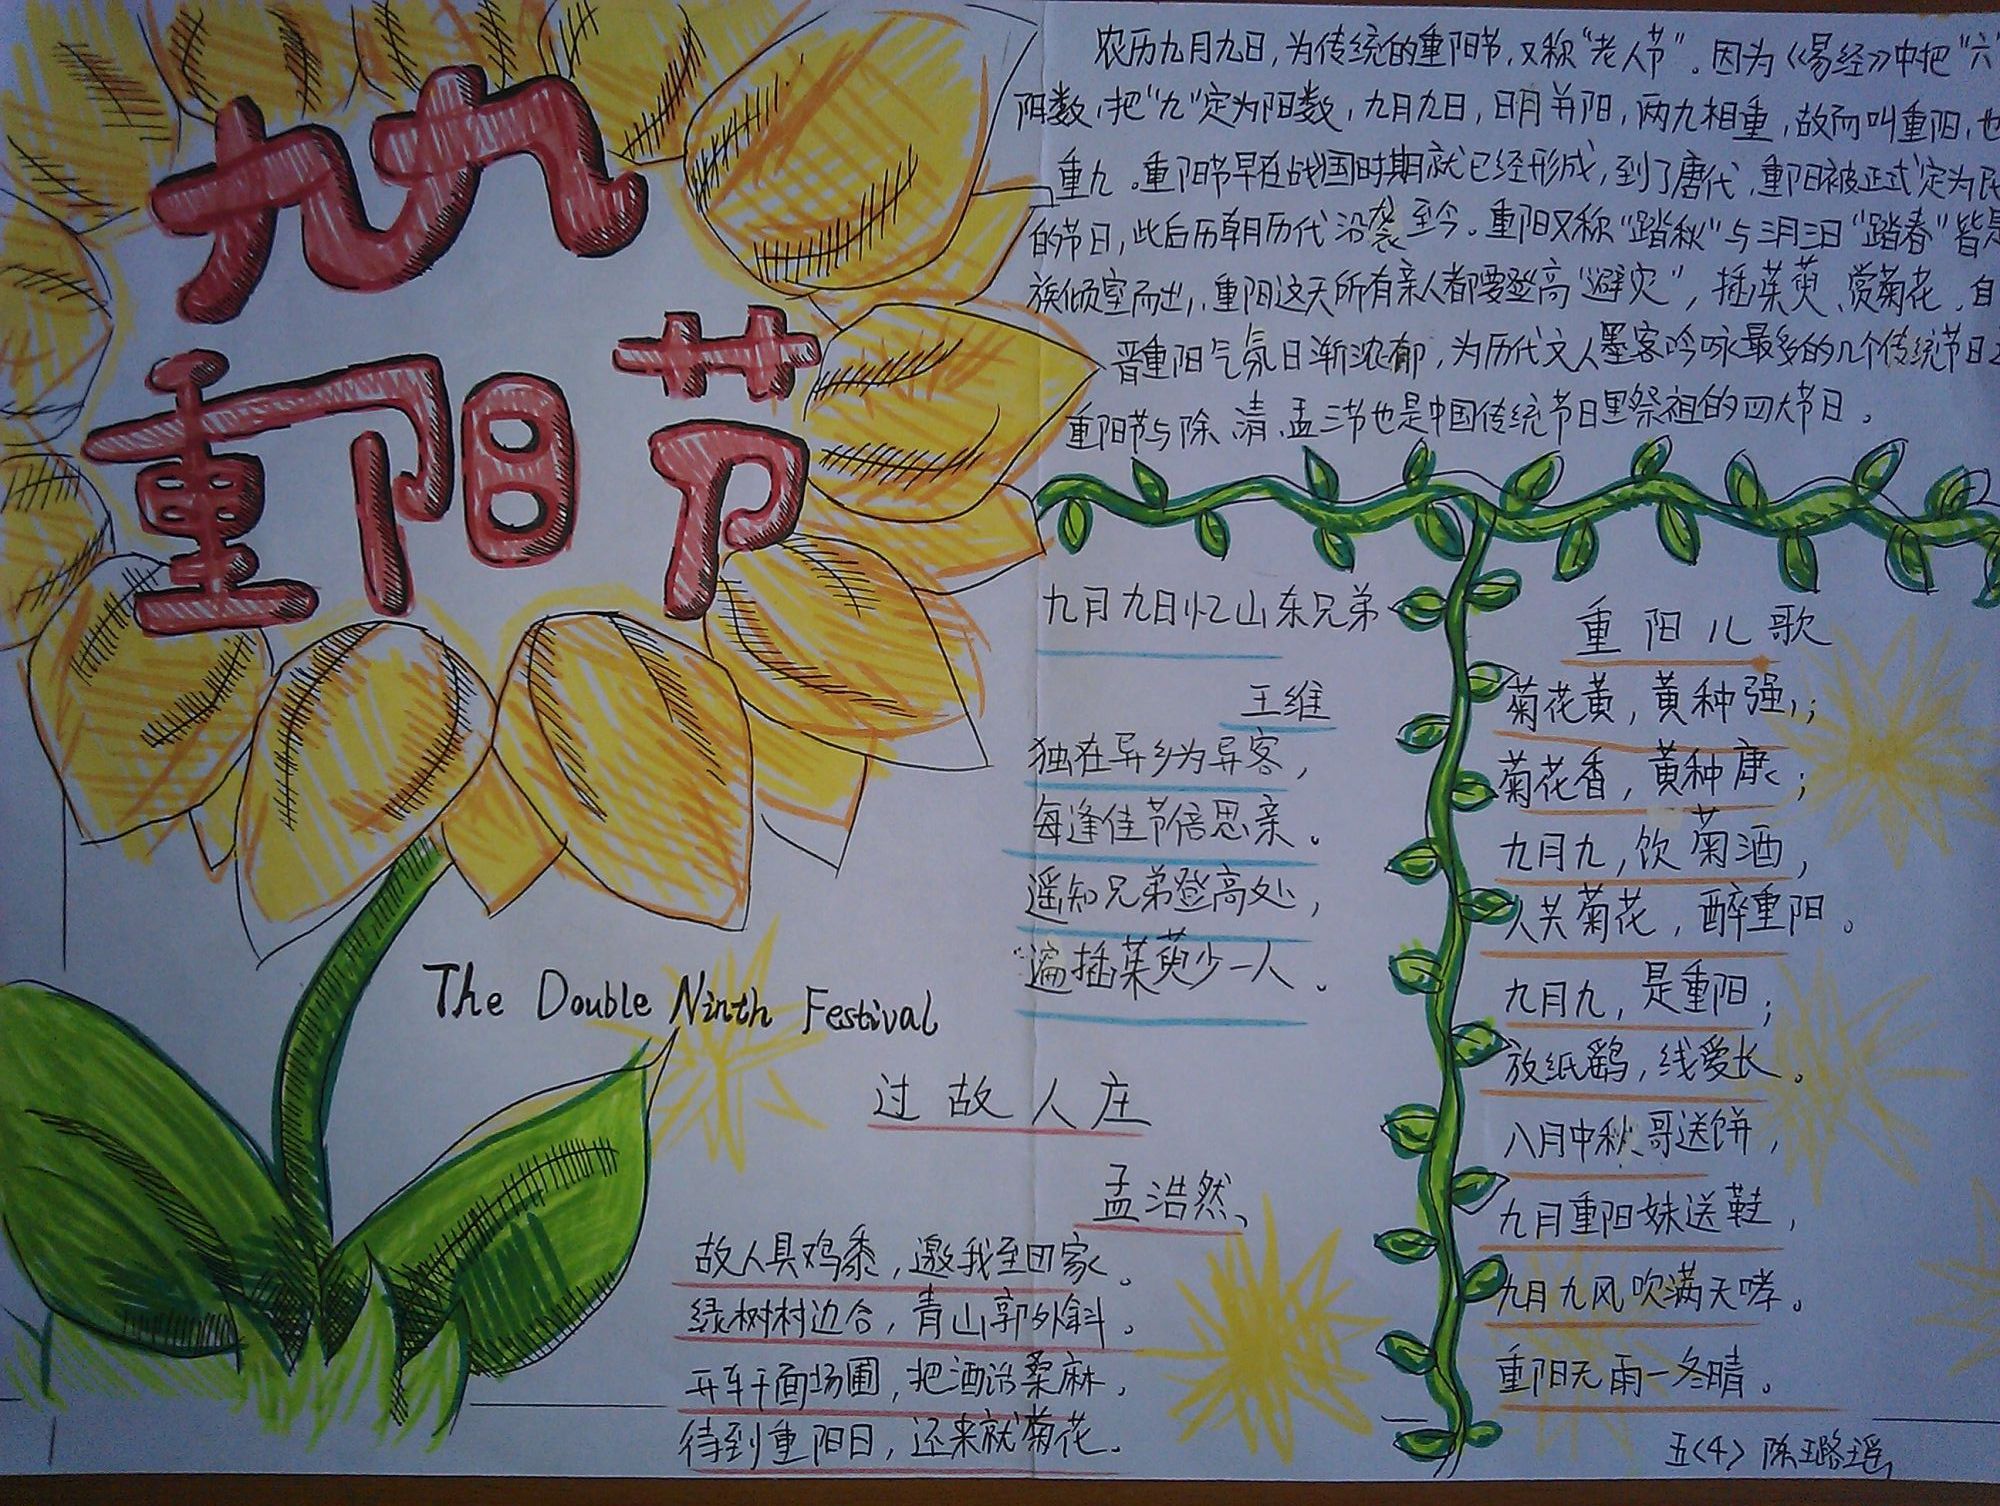 九九
重阳节
农历九月九日，为传统的重阳节，又称“老人节”。因为《易经》中把“六”
阴数，把“九”定为阳数，九月九日，日月并阳，两九相重，故而叫重阳，也
重九。重阳节早在战国时期就已经形成，到了唐代，重阳被正式定为民
的节日，此后历朝历代沿袭至今。重阳又称“踏秋”与三月三日“踏春”皆是
族倾室而出，重阳这天所有亲人都要登高“避灾”，插茱萸、赏菊花。自
晋重阳气氛日渐浓郁，为历代文人墨客吟咏最多的几个传统节日之
重阳节与除、清、盂三节也是中国传统节日里祭祖的四大节日。
九月九日忆山东兄弟
王维
独在异乡为异客，
每逢佳节倍思亲。
遥知兄弟登高处，
遍插茱萸少一人。
重阳儿歌
菊花黄，黄种强；
菊花香，黄种康；
九月九，饮菊酒，
人共菊花，醉重阳。
九月九，是重阳；
放纸鹞，线爱长。
八月中秋哥送饼，
九月重阳妹送鞋，
九月九风吹满天哮。
重阳无雨一冬晴。
The Double Ninth Festival
过故人庄
孟浩然
故人具鸡黍，邀我至田家。
绿树村边合，青山郭外斜。
开车干面场圃，把酒话桑麻。
待到重阳日，还来就菊花。
五〈4〉陈璐瑶